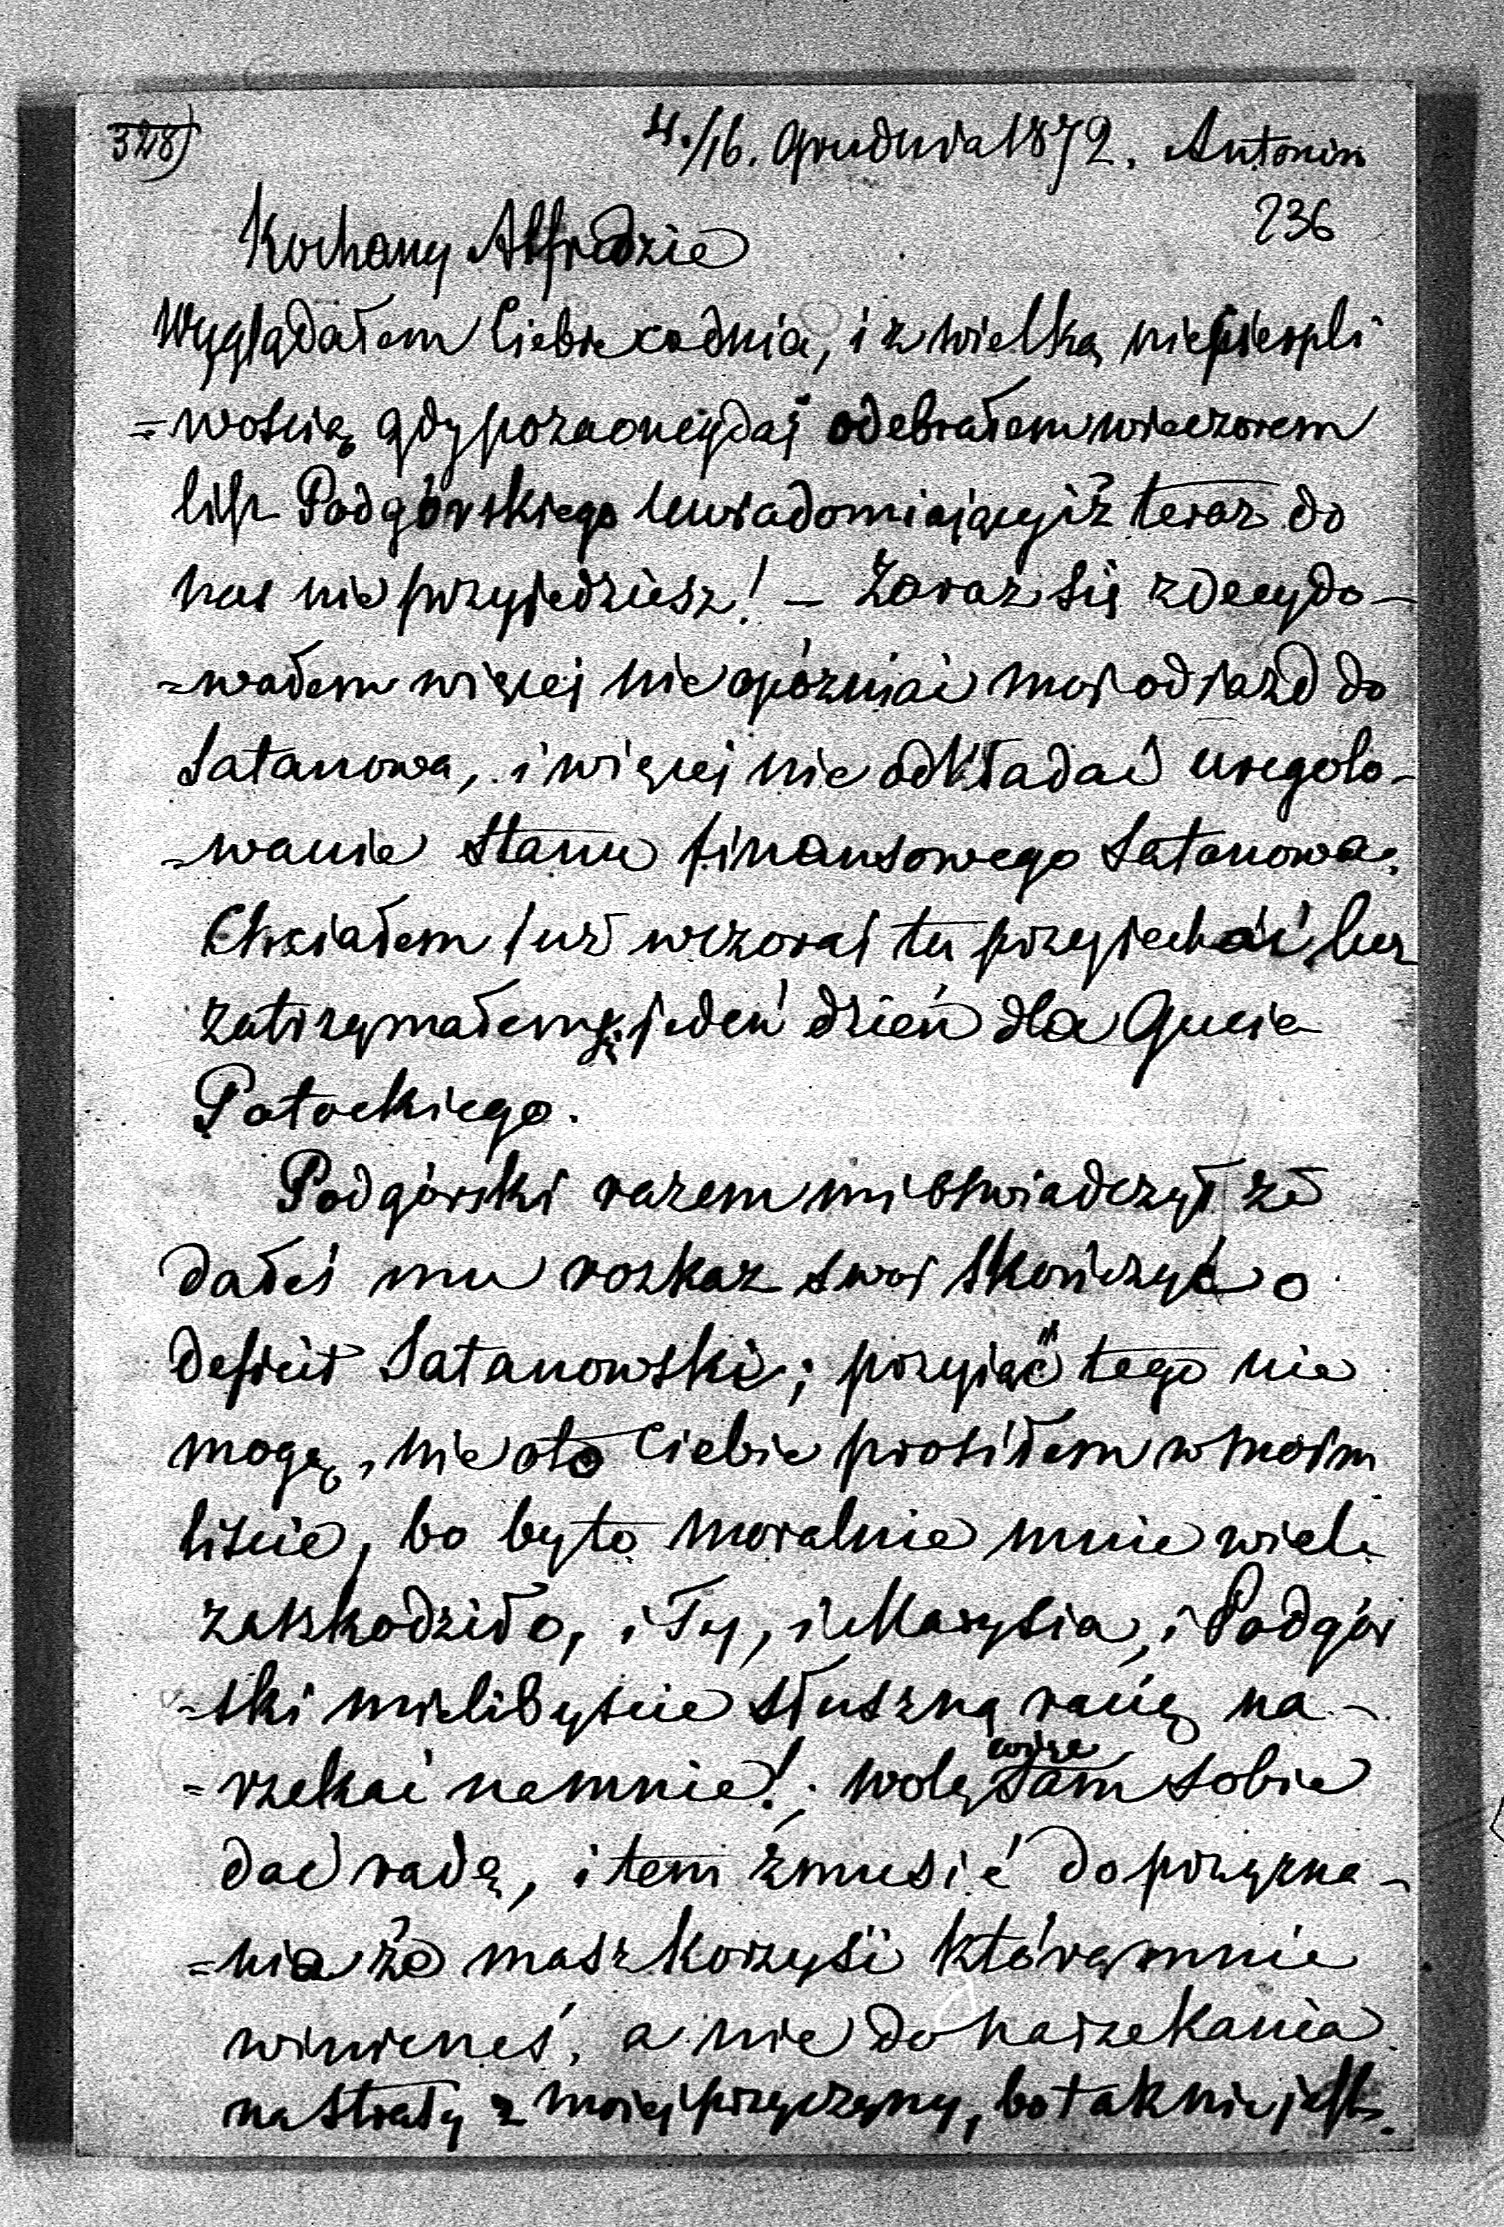 328)
4./16. Grudnia 1872. Antonin
236
Kochany Alfredzie
Wyglądałem Ciebie codnia, i z wielką niecierpli
=wością, gdy pozaonegdaj odebrałem wieczorem
list Podgórskiego uwiadomiający iż teraz do
nas nie przyjedziesz! – Zaraz się zdecydo-
=wałem więcej nie opóźniać moj odjazd do
Satanowa, i więcej nie odkładać uregolo-
=wanie stanu finansowego Satanowa.
Chciałem już wczoraj tu przyjechać, lecz
zatrzymałem się jeden dzień dla Gucia
Potockiego.
Podgórski razem mi oświadczył że
dałeś mu rozkaz swoj skończyć o
deficit Satanowski; przyiąć tego nie
mogę, nie oto Ciebie prosiłem w moim
liście, bo byto moralnie mnie wiele
zaszkodziło, i Ty, i Marysia, i Podgór
=ski mielibyście słuszną racię na-
=rzekać na mnie!; wolę więc sam sobie
dać radę, i tem zmusić do przyzna-
=nia że masz korzyść którą mnie
winieneś, a nie do narzekania
na straty z mojej przyczyny, bo tak nie jest.